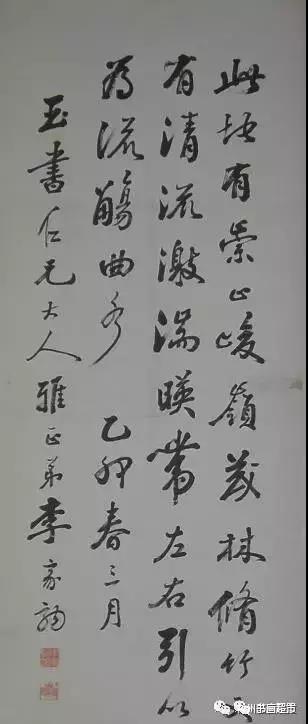 此地有崇山峻嶺茂林脩竹又
有清流激湍暎帶左右引以
為流觴曲水 乙卯春三月
玉書仁兄大人雅正弟李家駒
州书画超市